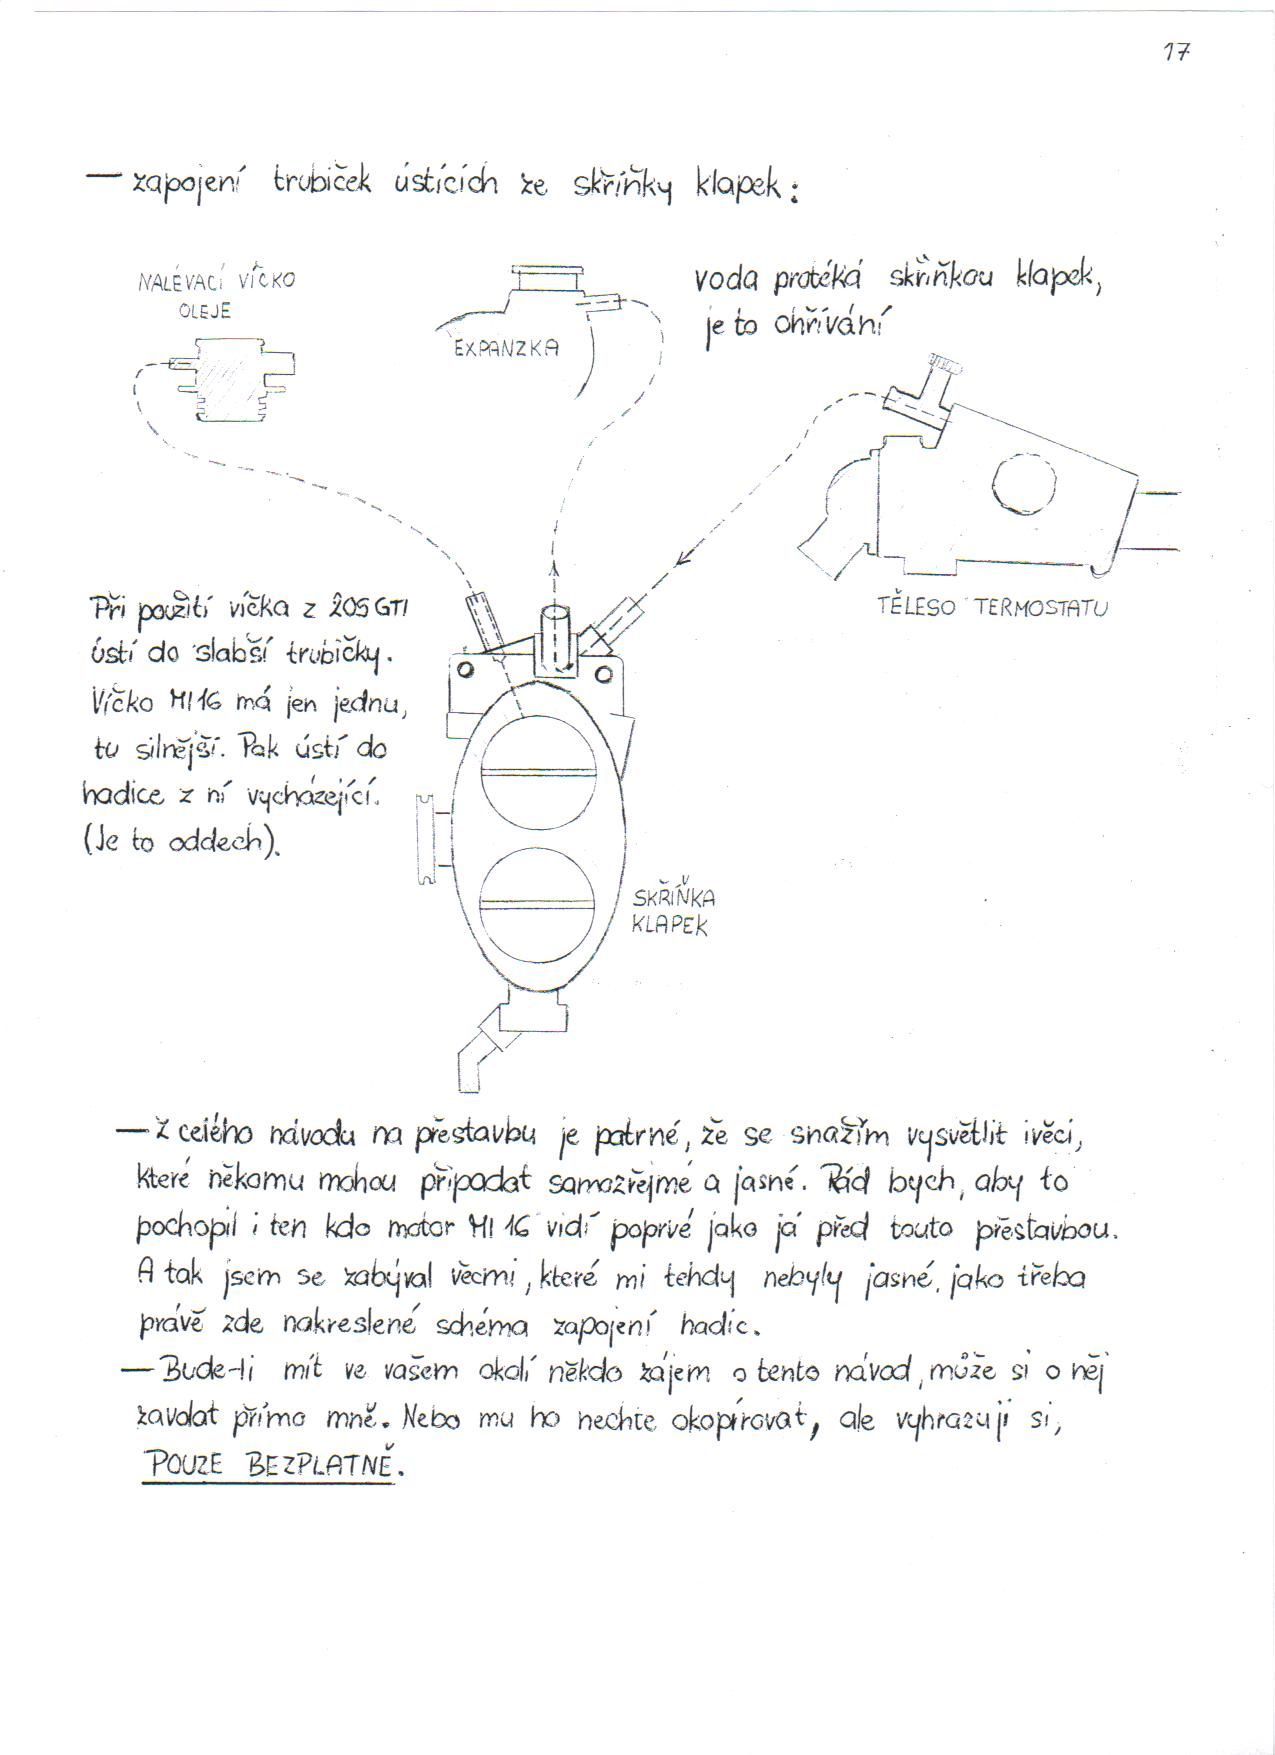 17
— zapojení trubiček ústících ze skříňky klapek:
NALÉVACÍ VÍČKO
OLEJE
EXPANZKA
voda protéká skříňkou klapek,
je to ohřívání
TĚLESO TERMOSTATU
Při použití víčka z 205 GTI
ústí do slabší trubičky.
Víčko MI 16 má jen jednu,
tu silnější. Pak ústí do
hadice z ní vycházející.
(Je to oddech).
SKŘÍŇKA
KLAPEK
— Z celého návodu na přestavbu je patrné, že se snažím vysvětlit i věci,
které někomu mohou připadat samozřejmé a jasné. Rád bych, aby to
pochopil i ten kdo motor MI 16 vidí poprvé jako já před touto přestavbou.
A tak jsem se zabýval věcmi, které mi tehdy nebyly jasné, jako třeba
právě zde nakreslené schéma zapojení hadic.
— Bude-li mít ve vašem okolí někdo zájem o tento návod, může si o něj
zavolat přímo mně. Nebo mu ho nechte okopírovat, ale vyhrazuji si,
POUZE BEZPLATNĚ.